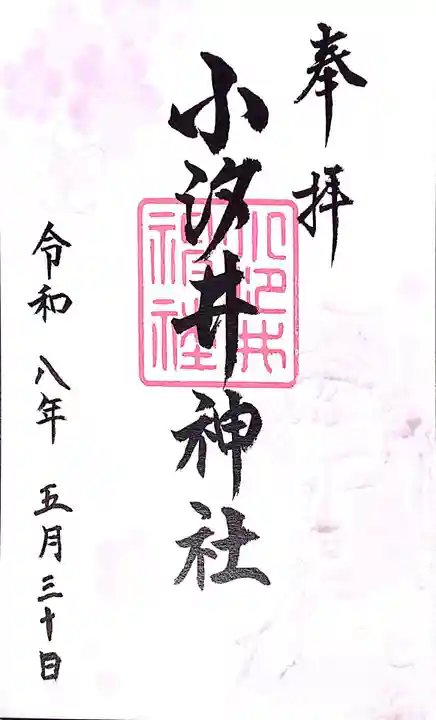 奉拝
小汐井神社
小汐井神社
令和八年五月三十日